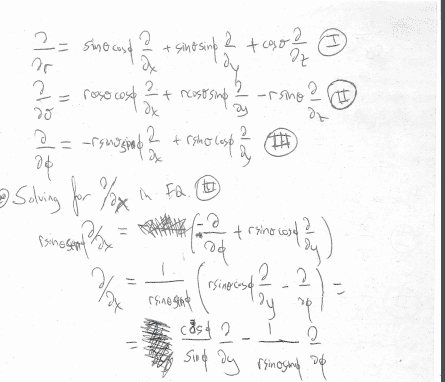 ∂/∂r = sinθcosϕ ∂/∂x + sinθsinϕ ∂/∂y + cosθ ∂/∂z (I)
∂/∂θ = rcosθcosϕ ∂/∂x + rcosθsinϕ ∂/∂y - rsinθ ∂/∂z (II)
∂/∂ϕ = -rsinθsinϕ ∂/∂x + rsinθcosϕ ∂/∂y (III)
Solving for ∂/∂x in EQ. (III)
rsinθsinϕ ∂/∂x = (-∂/∂ϕ + rsinθcosϕ ∂/∂y)
∂/∂x = 1/(rsinθsinϕ) (rsinθcosϕ ∂/∂y - ∂/∂ϕ) =
= cosϕ/sinϕ ∂/∂y - 1/(rsinθsinϕ) ∂/∂ϕ